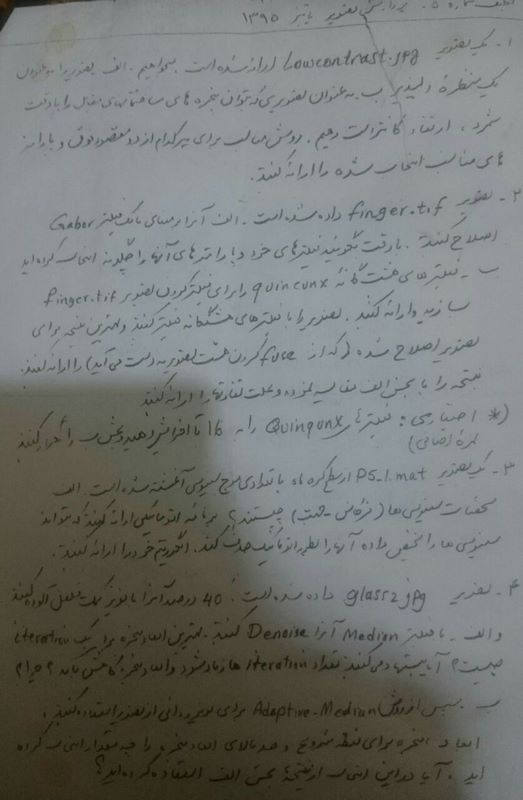 تکلیف شماره ۵ - پردازش تصویر پاییز ۱۳۹۵
۱- یک تصویر Lowcontrast.jpg ارائه شده است. میخواهیم. الف- تصویر را به عنوان
یک منظره دلپذیر ب- به عنوان تصویری که بتوان پنجره های ساختمانهای مقابل را با دقت
شمرد، ارتقاء کانتراست دهیم. روش مناسب برای هر کدام از دو مقصد فوق و پارامتر
های مناسب انتخاب شده را ارائه کنید.
۲- تصویر finger.tif داده شده است. الف- آنرا بر مبنای بانک فیلتر Gabor
اصلاح کنید. با دقت بگوئید فیلترهای خود و پارامترهای آنها را چگونه انتخاب کرده اید
ب- فیلترهای هشت گانه quincunx را برای فیلتر کردن تصویر finger.tif
بسازید و ارائه کنید. تصویر را با فیلترهای هشتگانه فیلتر کنید و بهترین نتیجه برای
تصویر اصلاح شده (که از fuse کردن هشت تصویر به دست می آید) را ارائه کنید.
نتیجه را با بخش الف مقایسه نموده و علت تفاوتها را ارائه کنید
(* اختیاری: فیلترهای Quinqunx را به 16 تا افزایش دهید و بخش ب را تکرار کنید
نمره اضافی)
۳- یک تصویر P5_1.mat از سطح کره ماه با تعدادی موج سینوسی آغشته شده است. الف
مختصات سینوسی ها (فرکانس - جهت) چیستند؟ ب- برنامه اتوماتیکی ارائه کنید که بتواند
سینوسی ها را تشخیص داده آنها را بطور اتوماتیک حذف کند. الگوریتم خود را ارائه کنید.
۴- تصویر glass2.jpg داده شده است. 40 درصد آنرا با نویز نمک فلفل آلوده کنید
و الف- با فیلتر Median آنرا Denoise کنید. بهترین ابعاد پنجره برای یک iteration
چیست؟ آیا پیشنهاد می کنید تعداد iteration ها زیاد شود و ابعاد پنجره کاهش یابد؟ چرا؟
ب- سپس از روش Adaptive-Median برای نویززدایی از تصویر استفاده کنید.
ابعاد پنجره برای نقطه شروع و حد بالای ابعاد پنجره را چه مقدار انتخاب کرده
اید. آیا در این انتخاب از نتیجه بخش الف استفاده کرده اید؟